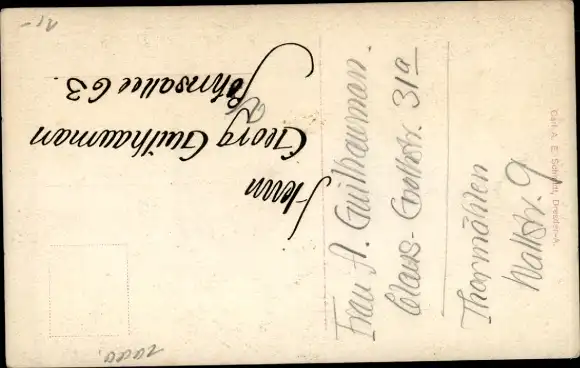 Herrn
Georg Guilhauman
Johnsallee 63.
Frau A. Guilhauman.
Claus-Grothstr. 31a
Thormählen
Wallstr. 9
Carl A. E. Schmidt, Dresden-A.